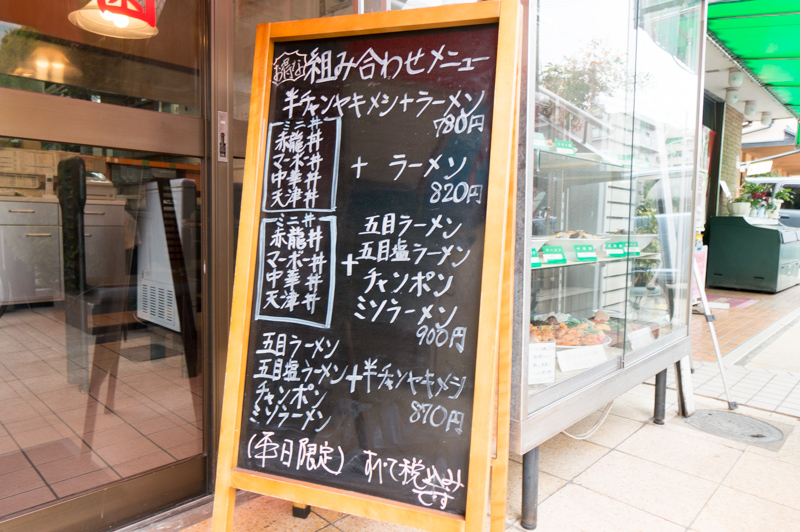 お得な 組み合わせメニュー
半チャンヤキメシ+ラーメン
780円
ミニ丼
赤龍丼
マーボー丼
中華丼
天津丼
+ ラーメン
820円
ミニ丼
赤龍丼
マーボー丼
中華丼
天津丼
+
五目ラーメン
五目塩ラーメン
チャンポン
ミソラーメン
900円
五目ラーメン
五目塩ラーメン
チャンポン
ミソラーメン
+半チャンヤキメシ
870円
(平日限定) すべて税込み
です